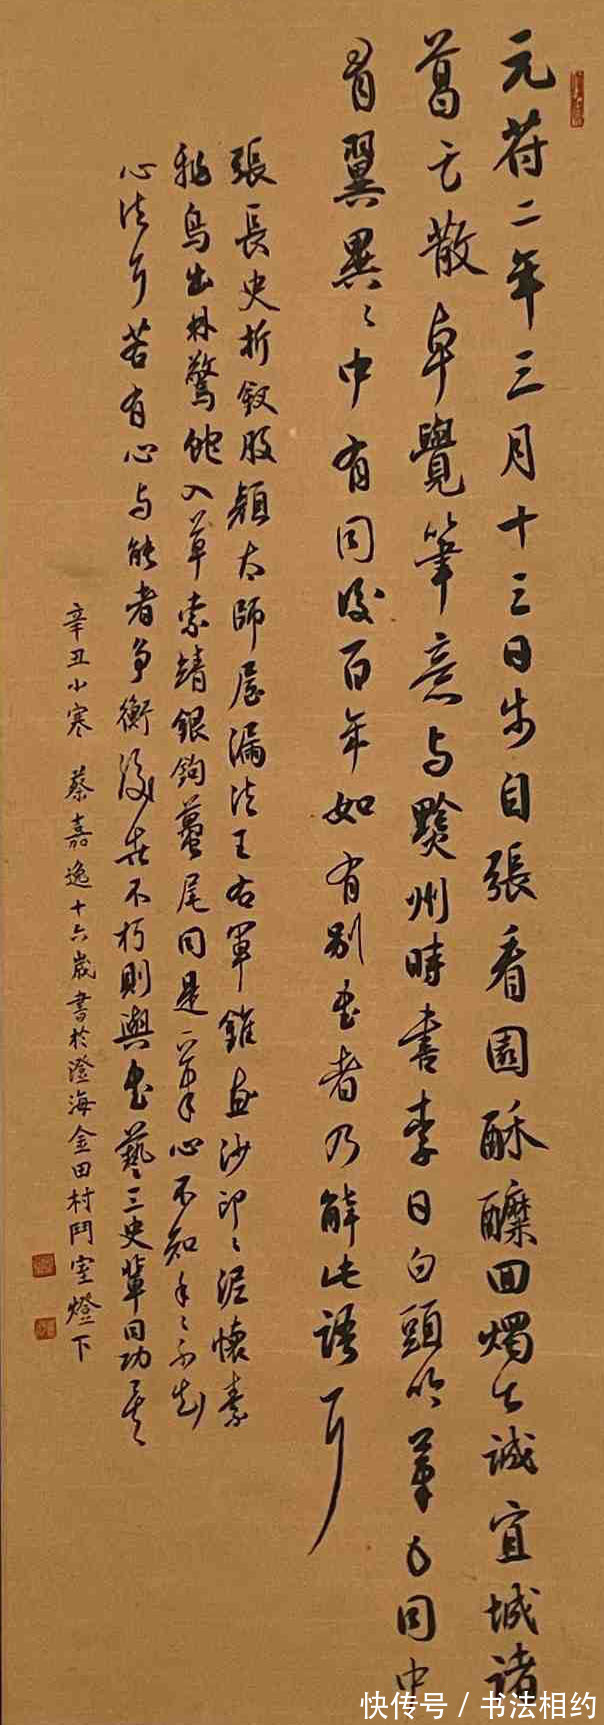 元符二年三月十三日步自張園看酥醾回燭下試宣城諸
葛元散卓覺筆意与黔州時書李白白頭吟筆力同中
有異異〻中有同後百年如有別書者乃解此語耳
張長史折釵股顏太師屋漏法王右軍錐画沙印〻泥懷素
飛鳥出林驚蛇入草索靖銀鉤蠆尾同是一筆心不知手〻不知
心法耳若有心与能者争衡後世不朽則與書藝工史輩同功矣
辛丑小寒 蔡嘉逸十六歲書於澄海金田村鬥室燈下
快传号 / 书法相约